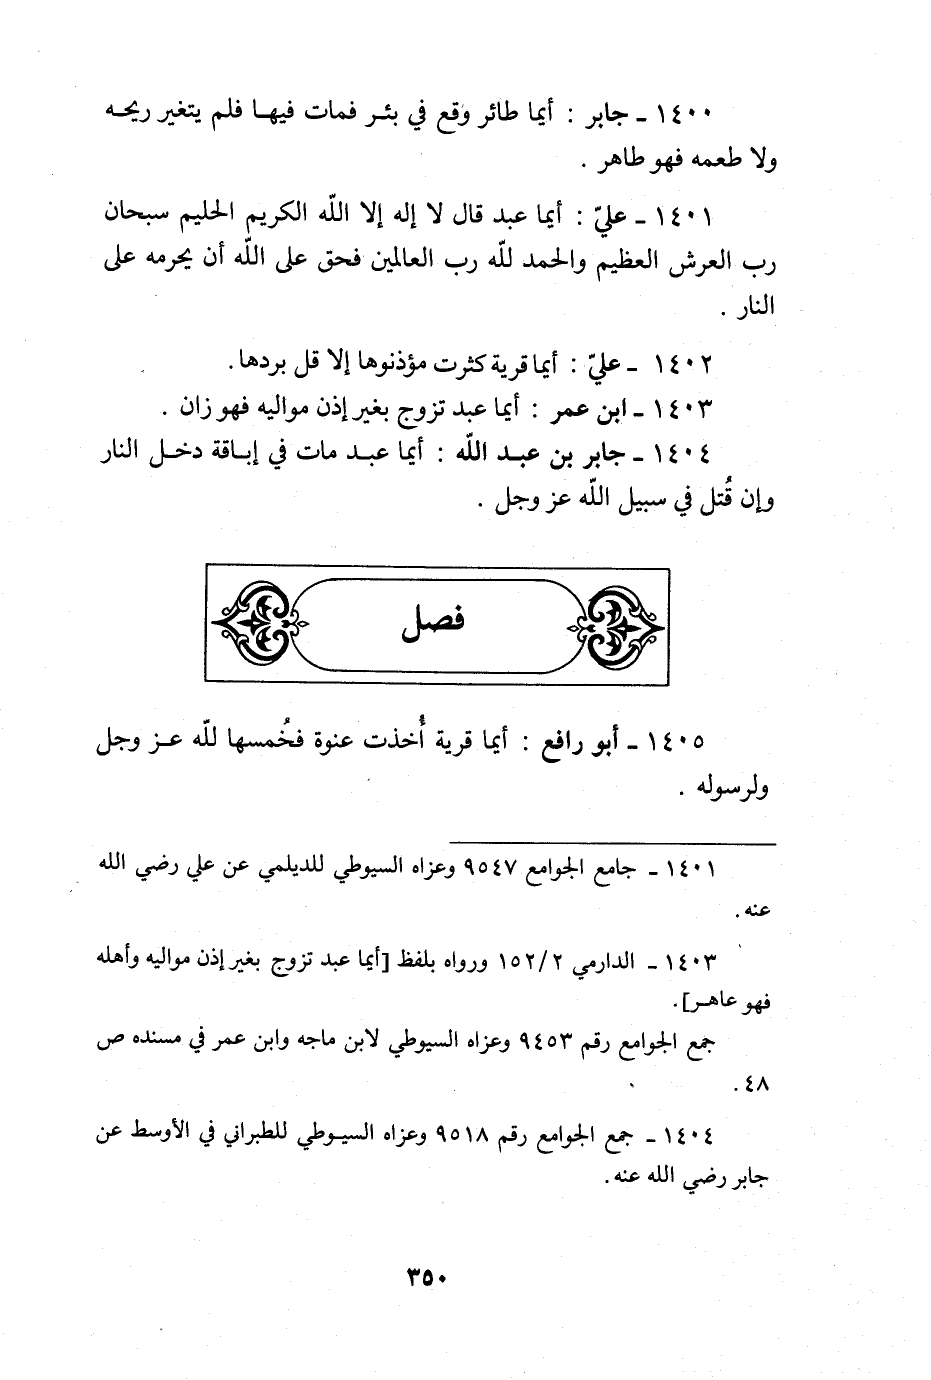 ١٤٠٠ ـ جابر : أيما طائر وقع في بئـر فمات فيهـا فلم يتغير ريحـه
ولا طعمه فهو طاهر .
١٤٠١ ـ عليّ : أيما عبد قال لا إله إلا اللّه الكريم الحليم سبحان
رب العرش العظيم والحمد للّه رب العالمين فحق على اللّه أن يحرمه على
النار .
١٤٠٢ ـ عليّ : أيما قرية كثرت مؤذنوها إلا قل بردها.
١٤٠٣ ـ ابن عمر : أيما عبد تزوج بغير إذن مواليه فهو زان .
١٤٠٤ ـ جابر بن عبـد اللّه : أيما عبـد مات في إبـاقة دخـل النار
وإن قُتل في سبيل اللّه عز وجل .
فصل
١٤٠٥ ـ أبو رافع : أيما قرية أُخذت عنوة فخُمسها للّه عـز وجل
ولرسوله .
١٤٠١ ـ جامع الجوامع ٩٥٤٧ وعزاه السيوطي للديلمي عن علي رضي الله
عنه.
١٤٠٣ ـ الدارمي ١٥٢/٢ ورواه بلفظ [أيما عبد تزوج بغير إذن مواليه وأهله
فهو عاهـر].
جمع الجوامع رقم ٩٤٥٣ وعزاه السيوطي لابن ماجه وابن عمر في مسنده ص
٤٨ .
١٤٠٤ ـ جمع الجوامع رقم ٩٥١٨ وعزاه السيـوطي للطبراني في الأوسط عن
جابر رضي الله عنه.
٣٥٠